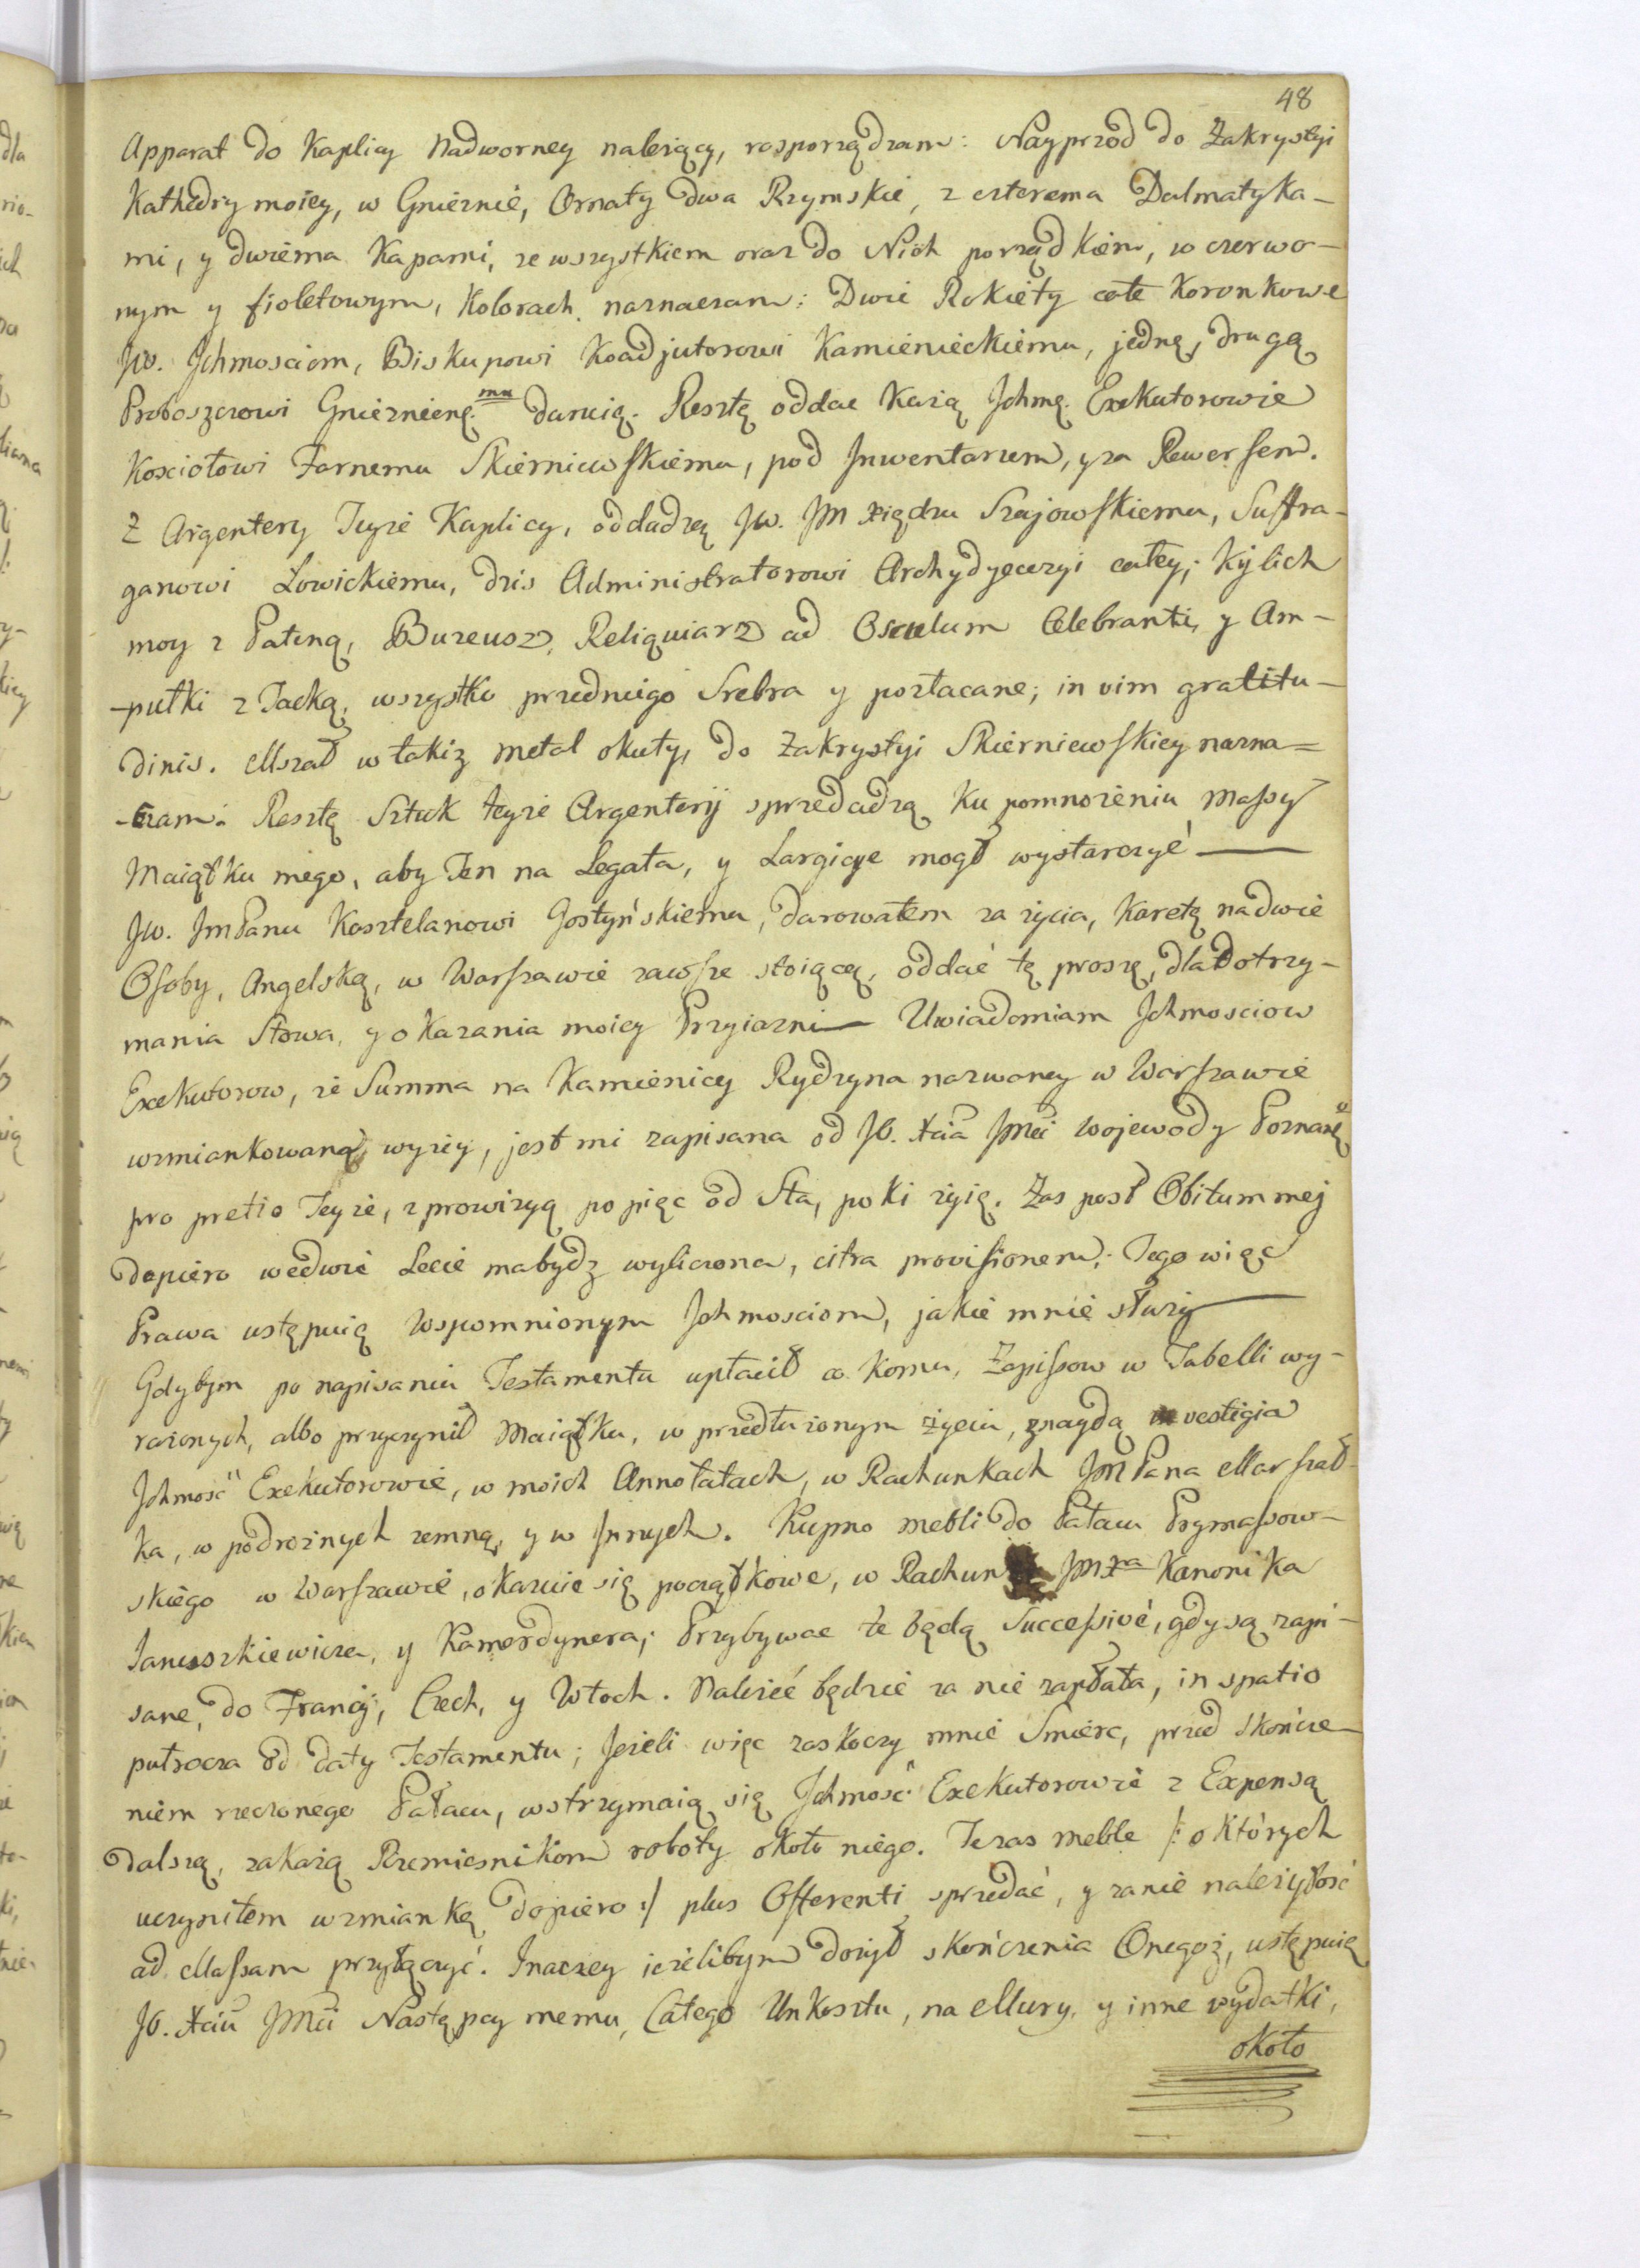 48
Apparat do Kaplicy Nadworney należący, rosporządzam: Nayprzod do Zakrystyi
Kathedry moiey, w Gnieznie, Ornaty dwa Rzymskie, z czterema Dalmatyka-
mi, y dwiema Kapami, ze wszystkiem oraz do Nich porządkiem, w czerwo-
nym y fioletowym, Kolorach naznaczam: Dwie Rokiety całe Koronkowe
JW. Jchmosciom, Biskupowi Koadjutorowi Kamienieckiemu, jednę, drugą
Proboszczowi Gnieznienę.mu daruię. Resztę oddac Każą Jchmę. Exekutorowie
Kosciołowi Farnemu Skierniewskiemu, pod Jnwentarzem, y za Rewersem.
Z Argentery Teyże Kaplicy, oddadzą JW. JM xiędzu Szajowskiemu, Suffra-
ganowi Łowickiemu, dzis Administratorowi Archydyecezyi całey, Kylich
moy z Pateną, Buzeusz, Reliquiarz ad Osculum Celebranti, y Am-
-pułki z Tacką, wszystko przedniego Srebra y pozłacane; in vim gratitu-
dinis. Mszał w takiz metal okuty, do Zakrystyi Skierniewskiey nazna=
-czam. Resztę Sztuk teyże Argenterij sprzedadzą Ku pomnożeniu Massy
Maiątku mego, aby Ten na Legata, y Largicye mogł wystarczyć —
JW. JmPanu Kasztelanowi Gostyńskiemu, darowałem za życia, Karetę na dwie
Osoby, Angelską, w Warszawie zawsze stoiącą, oddać tę proszę, dla dotrzy-
mania Słowa, y okazania moiey Przyiazni — Uwiadomiam Jchmosciow
Exekutorow, że Summa na Kamienicy Rydzyna nazwaney w Warszawie
wzmiankowaną wyżey, jest mi zapisana od JO. Xcia JMci Wojewody Poznanę
pro pretio Teyże, z prowizyą po pięc od Sta, poki żyię. Zas post Obitum mej
dopiero wedwie Lecie ma bydz wyliczona, citra provisionem; Tego więc
Prawa ustępuię Wspomnionym Jchmosciom, jakie mnie służy —
Gdybym po napisaniu Testamentu upłacił co komu, Zapissow w Tabelli wy-
rażonych, albo przyczynił Maiątku, w przedłużonym życiu, znaydą vestigia
Jchmosć Exekutorowie, w moich Annotatach, w Rachunkach JMPana Marszał-
ka, w podrożnych zemną, y w Jnnych. Kupno mebli do Pałacu Prymassow-
skiego w Warszawie, okazuie się początkowe, w Rachun JMXa Kanonika
Januszkiewicza, y Kamerdynera; Przybywac te będą Successivè, gdy są zapi-
sane, do Francij, Czech, y Włoch. Należeć będzie za nie zapłata, in spatio
pułrocza od daty Testamentu; Jeżeli więc zaskoczy mnie Smierc, przed skończe-
niem rzeczonego Pałacu, wstrzymaią się Jchmosć Exekutorowie z Expensą
dalszą, zakażą Rzemiesnikom roboty około niego. Te zas meble /: o których
uczyniłem wzmiankę dopiero :/ plus Offerenti sprzedać, y za nie należytość
ad Massam przyłączyć. Inaczey jeżelibym dożył skończenia Onegoż, ustępuię
JO. Xciu JMci Następcy memu, Całego Unkosztu, na Mury, y inne wydatki,
około